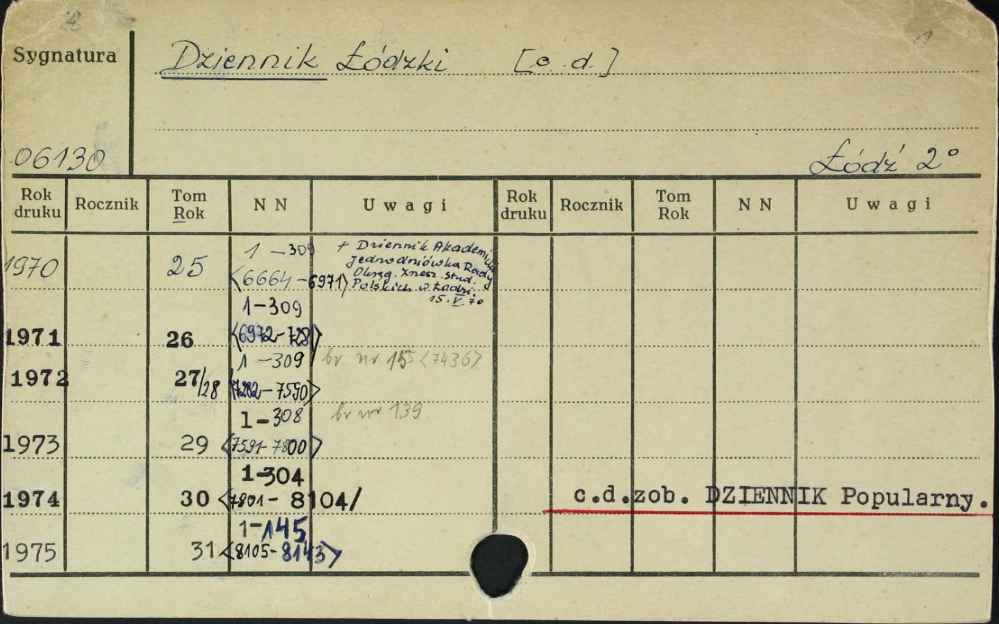 Sygnatura
Dziennik Łódzki [c. d.]
06130
Łódź 2°
Rok druku Rocznik Tom Rok NN Uwagi Rok druku Rocznik Tom Rok NN Uwagi
1970 25 1 - 309 + Dziennik
<6664 - 6971> Jednodniówka Rady
Okręg. Zrzesz. Stud.
Polskich w Łodzi.
15. V. 70
1-309
1971 26 <6972-728>
1 - 309 br. nr 15 <7436>
1972 27/28 <7282-7590>
1-308 br nr 139
1973 29 <7591-7800>
1-304
1974 30 <7801 - 8104/ c.d.zob. DZIENNIK Popularny.
1-145
1975 31 <8105-8143>